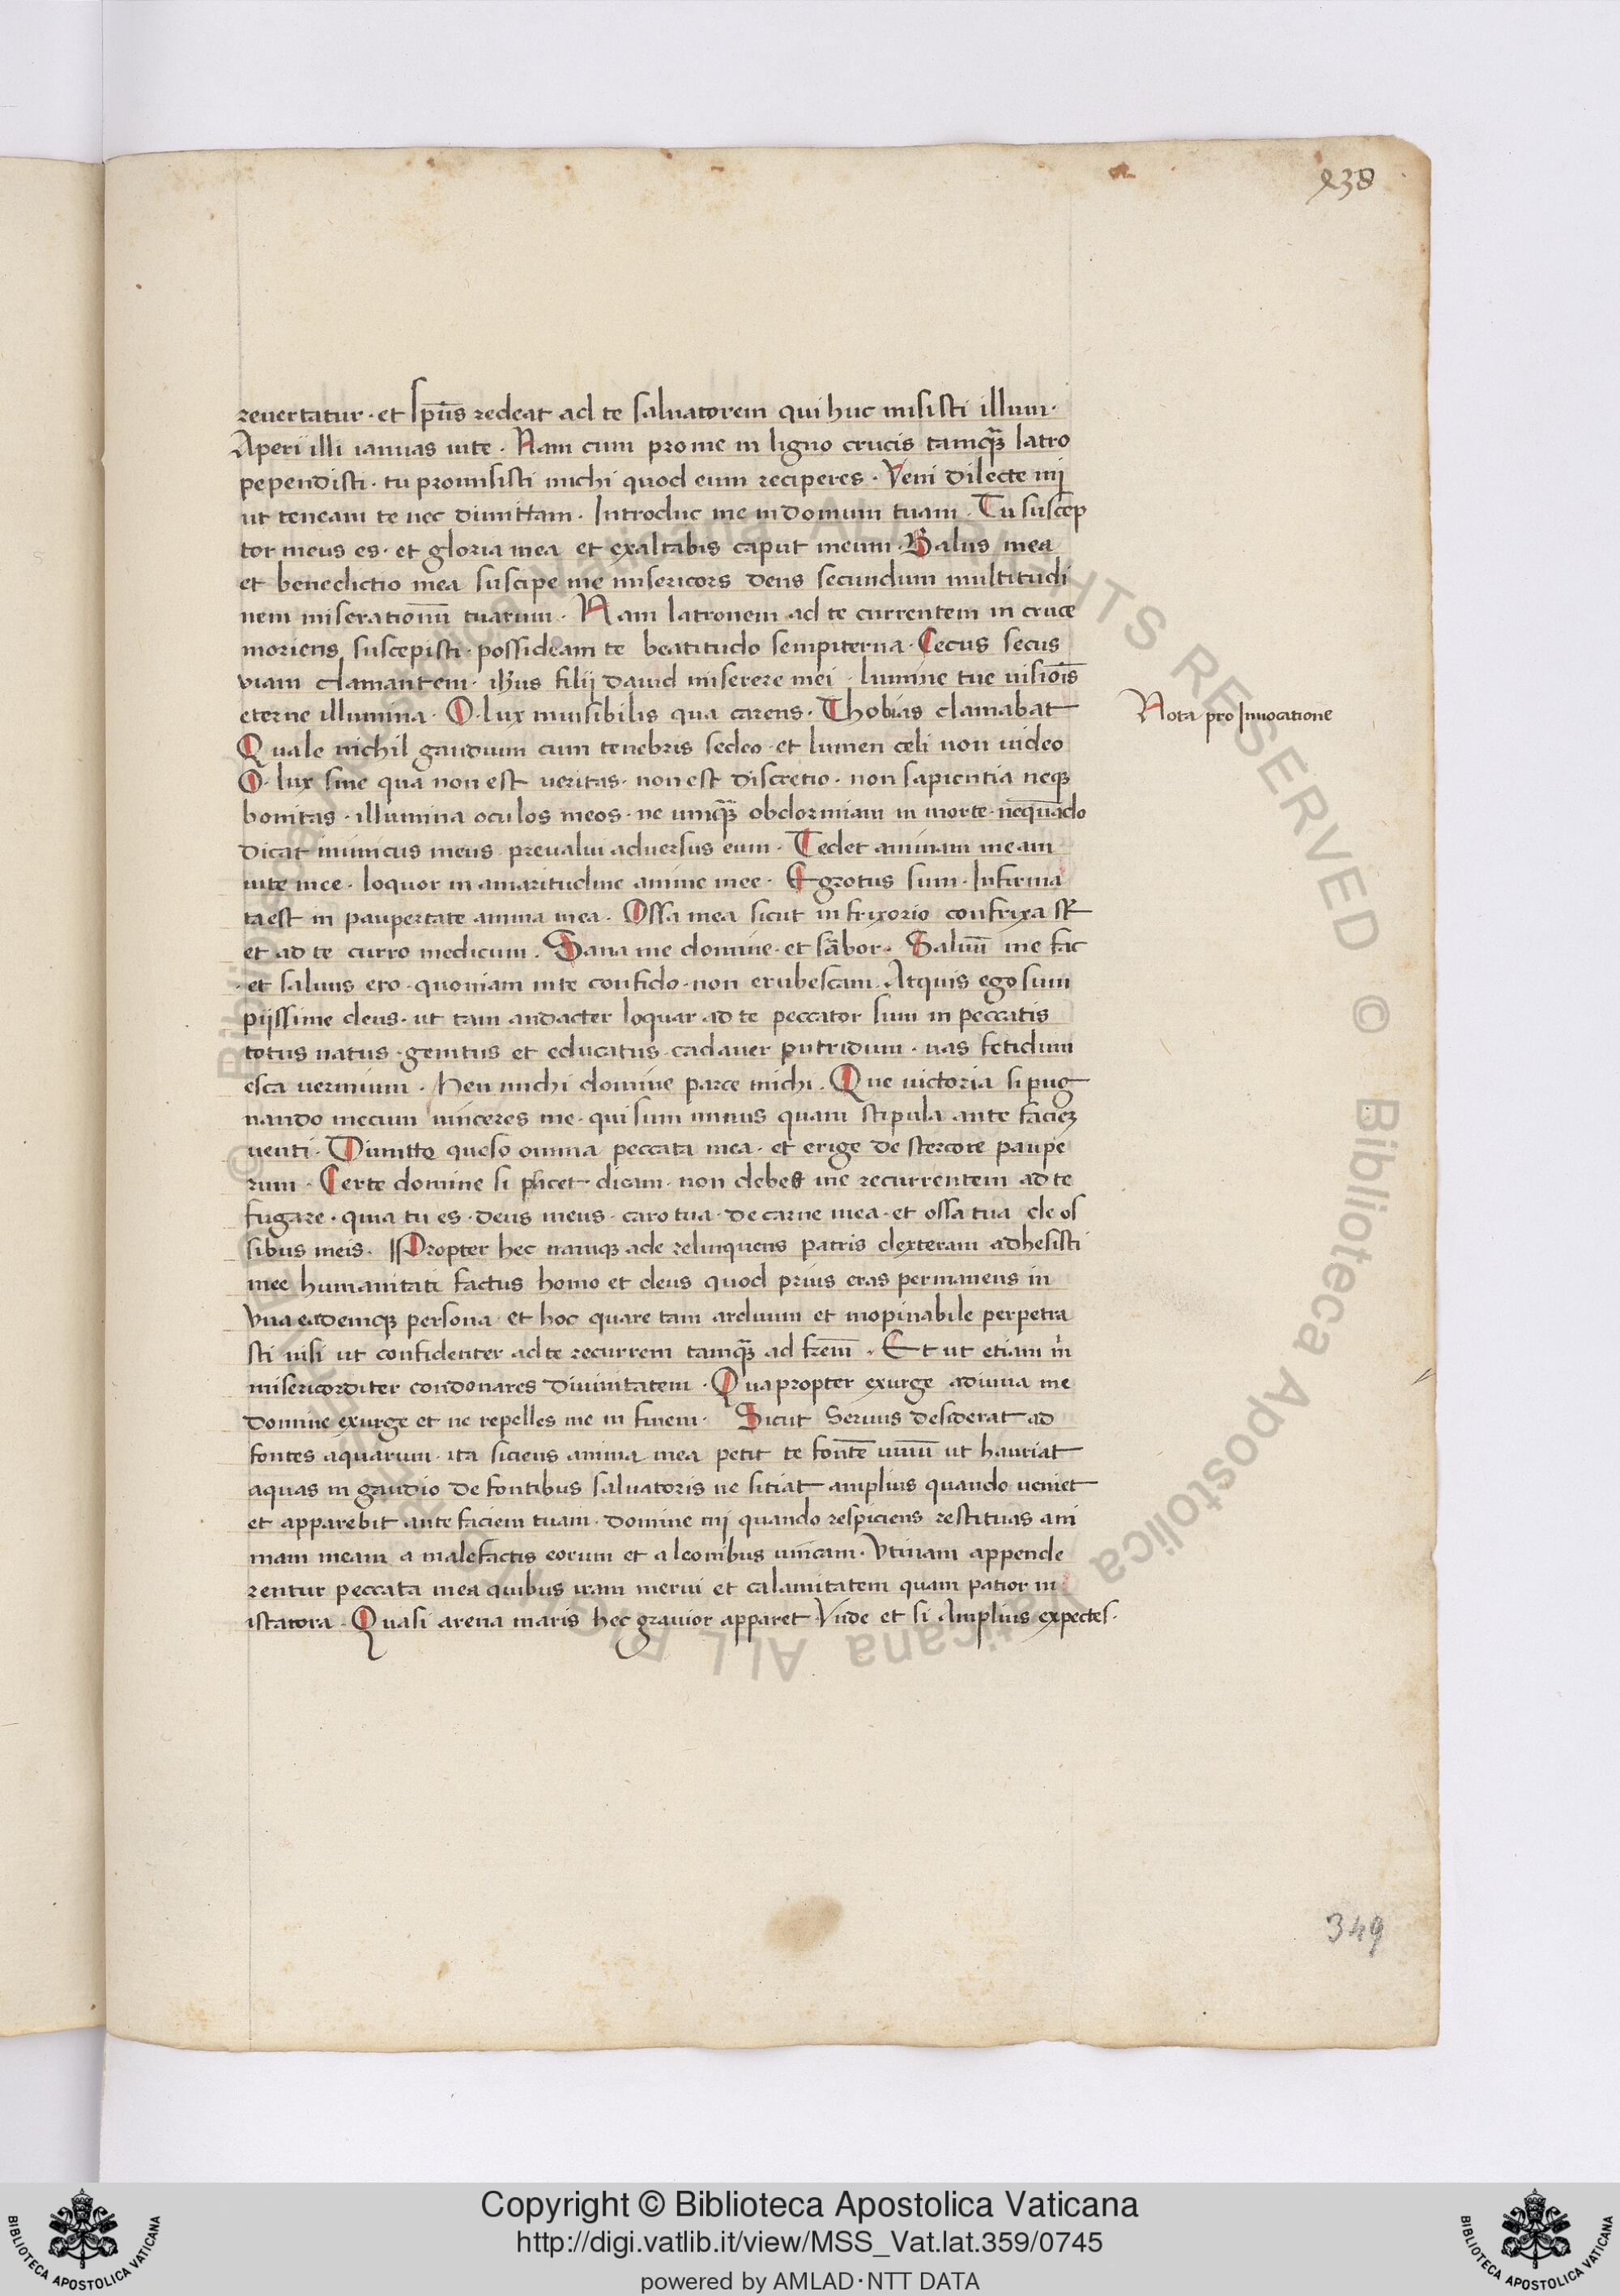 238
reuertatur · et sp̄us redeat ad te saluatorem qui huc misisti illum ·
Aperi illi ianuas uite · Nam cum pro me in ligno crucis tamq̄ȝ latro
pependisti · tu promisisti michi quod eum reciperes · Veni dilecte mi
ut teneam te nec dimittam · Introduc me in domum tuam · Tu suscep
tor meus es · et gloria mea et exaltabis caput meum · Salus mea
et benedictio mea suscipe me misericors deus secundum multitudi
nem miserationū tuarum · Nam latronem ad te currentem in cruce
moriens suscepisti · possideam te beatitudo sempiterna · Cecus secus
viam clamantem · ihūs filij dauid miserere mei · lumine tue uisiōīs
eterne illumina · O · lux inuisibilis qua carens · Thobias clamabat
Nota pro Inuocatione
Quale michil gaudium cum tenebris sedeo · et lumen celi non uideo
O · lux sine qua non est ueritas · non est discretio · non sapientia neqȝ
bonitas · illumina oculos meos · ne umq̄ȝ obdormiam in morte · neqūado
dicat inimicus meus preualui aduersus eum · Tedet animam meam
uite mee · loquor in amaritudine anime mee · Egrotus sum · Infirma
ta est in paupertate anima mea · Ossa mea sicut in frixorio confrixa st̄
et ad te curro medicum · Sana me domine · et sābor · Saluū me fac
· et saluus ero · quoniam in te confido · non erubescam · At quis ego sum
pijssime deus · ut tam audacter loquar ad te peccator sum in peccatis
totus natus · genitus et educatus · cadauer putridum · uas fetidum
esca uermium · Heu michi domine parce michi · Que uictoria si pug
nando mecum uinceres me · qui sum minus quam stipula ante facieȝ
uenti · Dimitto queso omnia peccata mea · et erige de stercore paupe
rum · Certe domine si placet dicam · non debes me recurrentem ad te
fugare · quia tu es · deus meus · caro tua · de carne mea · et ossa tua de os
sibus meis · Propter hec namqȝ ade relinquens patris dexteram adhesisti
mee humanitati factus homo et deus quod prius eras permanens in
vna eademqȝ persona et hoc quare tam arduum et inopinabile perpetra
sti nisi ut confidenter ad te recurrem tamq̄ȝ ad frēm · Et ut etiam m̄
misericorditer condonares diuinitatem · Quapropter exurge adiuua me
domine exurge et ne repelles me in finem · Sicut Seruus desiderat ad
fontes aquarum · ita siciens anima mea petit te fontē uiuū ut hauriat
aquas in gaudio de fontibus saluatoris ne sitiat amplius quando ueniet
et apparebit ante faciem tuam · domine mi quando respiciens restituas ani
mam meam a malefactis eorum et a leonibus unicam · Vtinam appende
rentur peccata mea quibus iram merui et calamitatem quam patior in
istatora · Quasi arena maris hec grauior apparet Vnde et si Amplius expectes ·
349
Copyright © Biblioteca Apostolica Vaticana
http://digi.vatlib.it/view/MSS_Vat.lat.359/0745
powered by AMLAD·NTT DATA